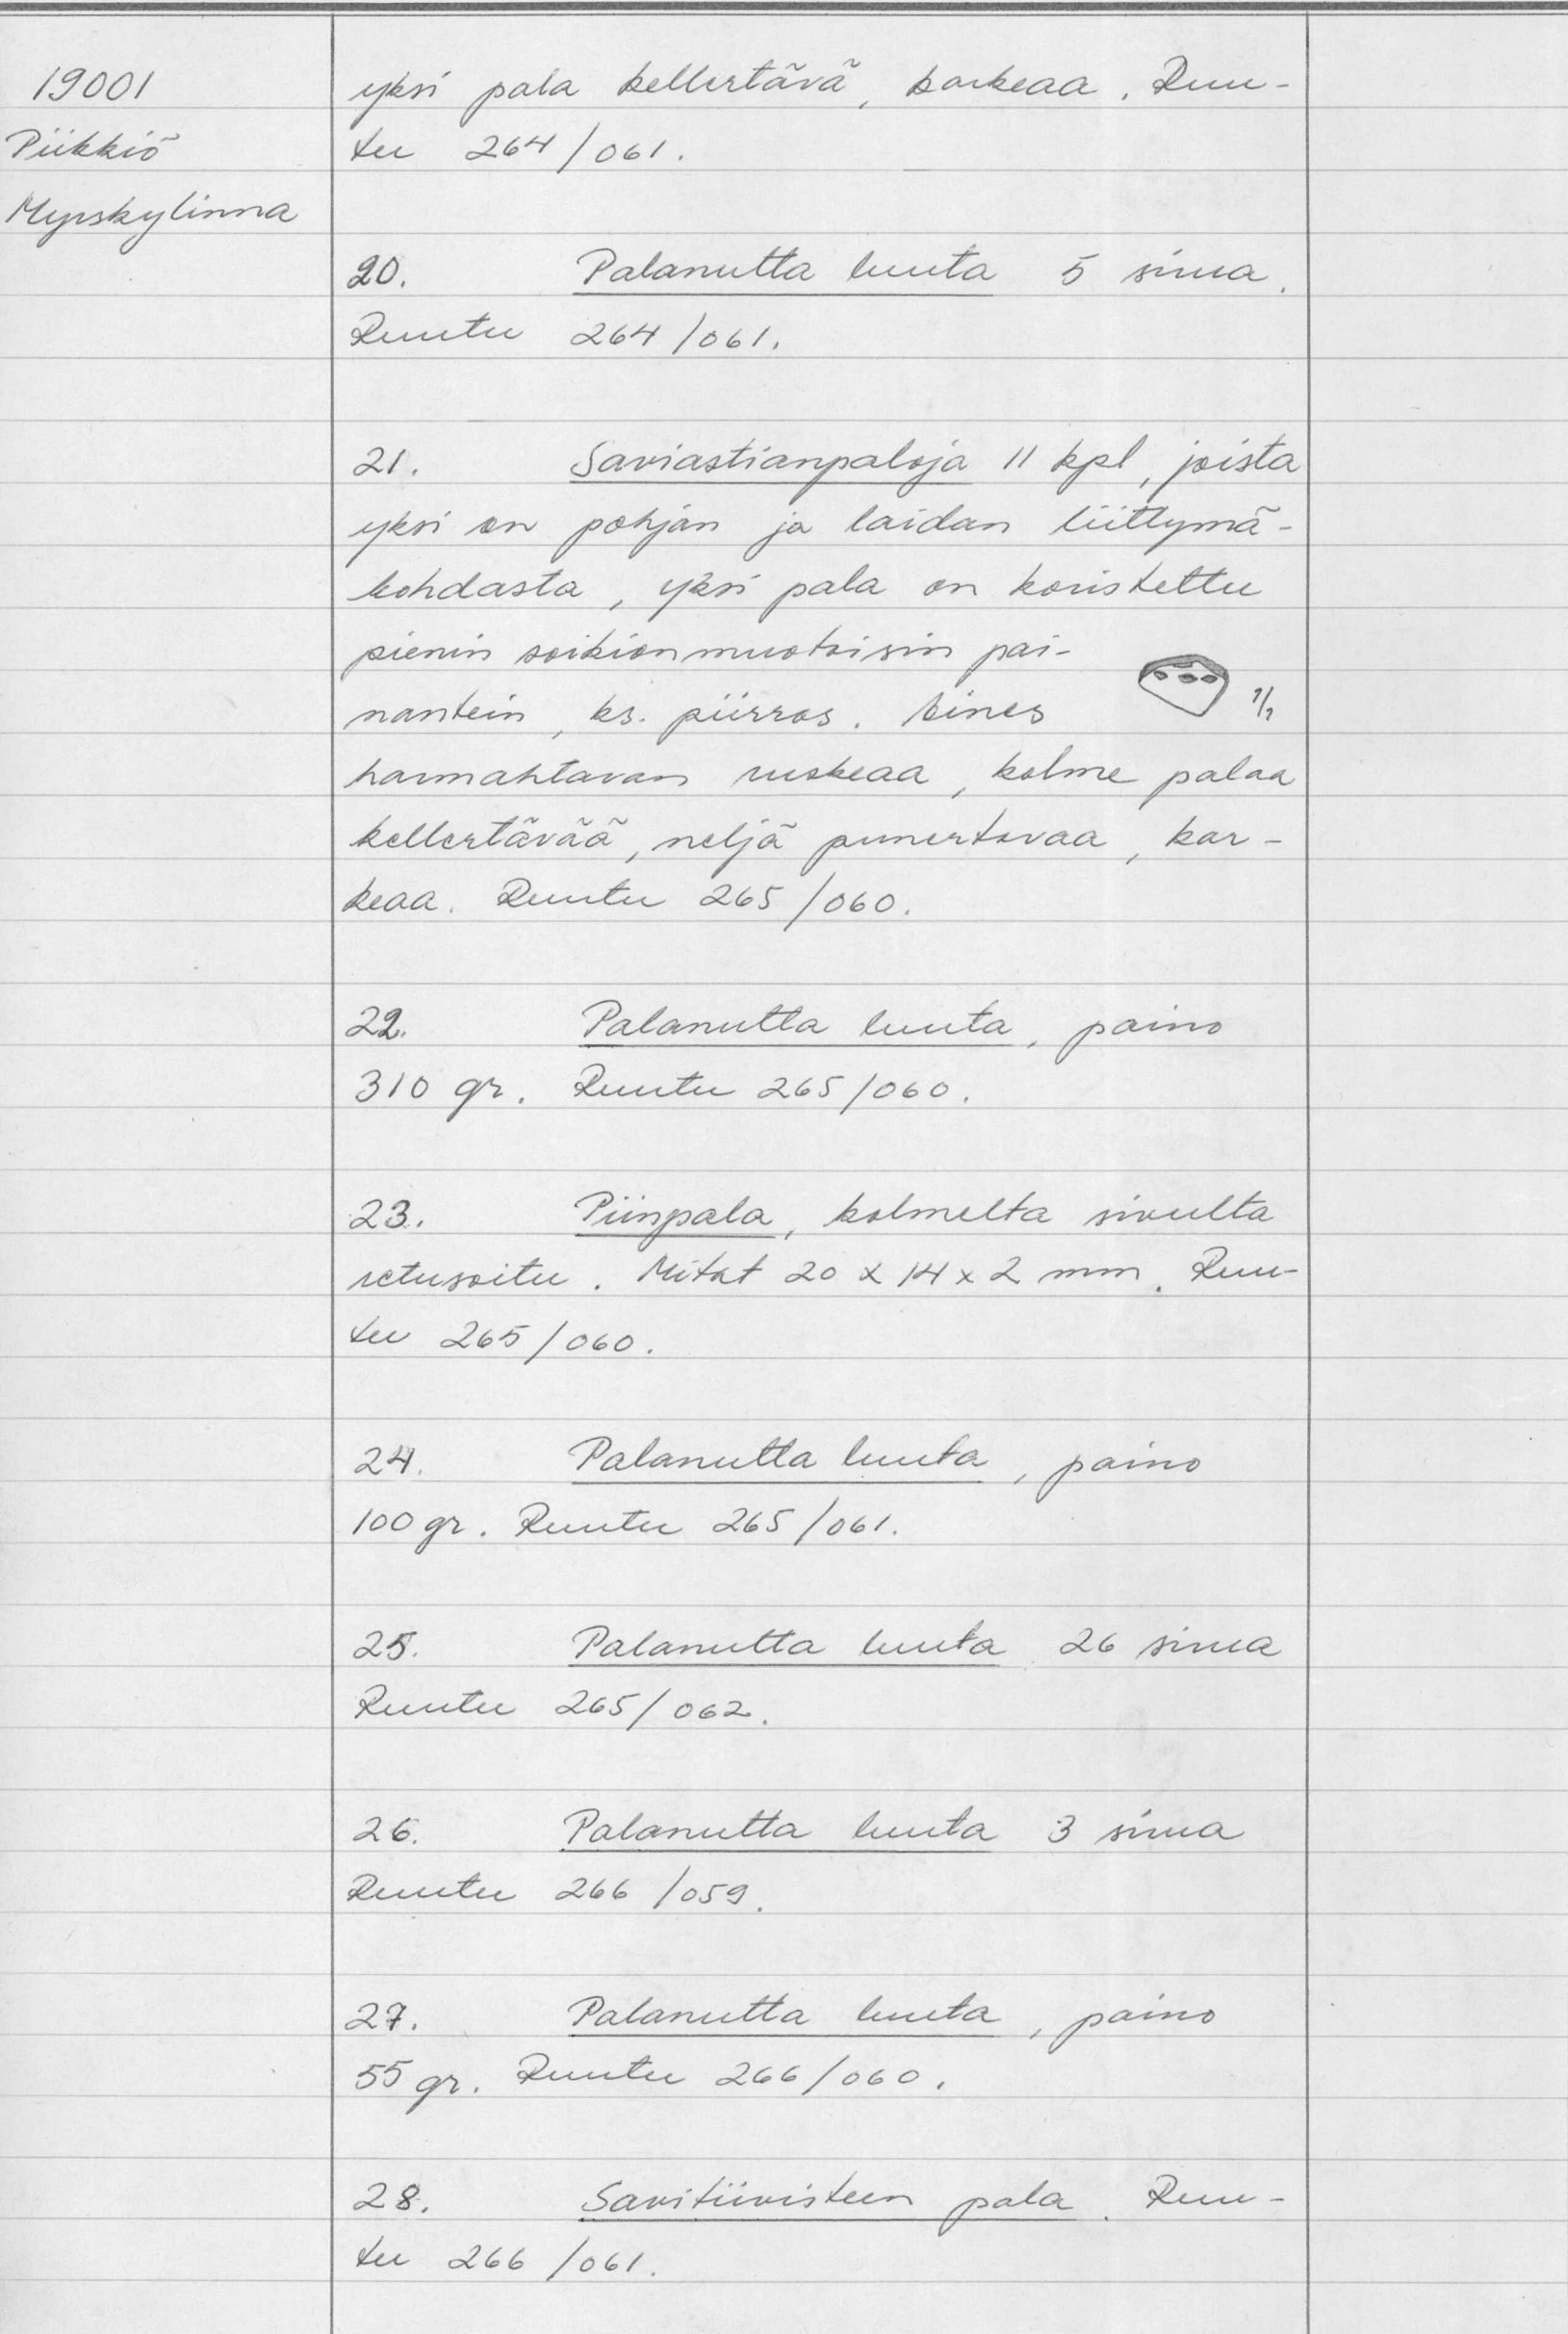 19001
Piikkiö
Myrskylinna
yksi pala kellertävä, karkeaa. Ruu-
tu 264/061.
20. Palanutta luuta 5 sirua.
Ruutu 264/061.
21. Saviastianpaloja 11 kpl, joista
yksi on pohjan ja laidan liittymä-
kohdasta, yksi pala on koristettu
pienin soikionmuotoisin pai-
nantein, ks. piirros. Aines
1/1
harmahtavan ruskeaa, kolme palaa
kellertävää, neljä punertavaa, kar-
keaa. Ruutu 265/060.
22. Palanutta luuta, paino
310 gr. Ruutu 265/060.
23. Piinpala, kolmelta sivulta
retusoitu. Mitat 20 x 14 x 2 mm. Ruu-
tu 265/060.
24. Palanutta luuta, paino
100 gr. Ruutu 265/061.
25. Palanutta luuta 26 sirua
Ruutu 265/062.
26. Palanutta luuta 3 sirua
Ruutu 266/059.
27. Palanutta luuta, paino
55 gr. Ruutu 266/060.
28. Savitiivisteen pala. Ruu-
tu 266/061.